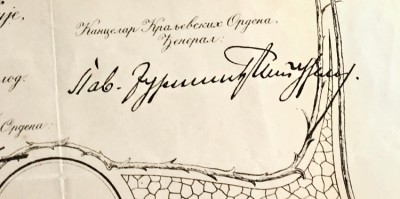 ије.
Канцелар Краљевских Ордена,
Ђенерал:
Пав. Јуришић Штурм.
лод:
Ордена: